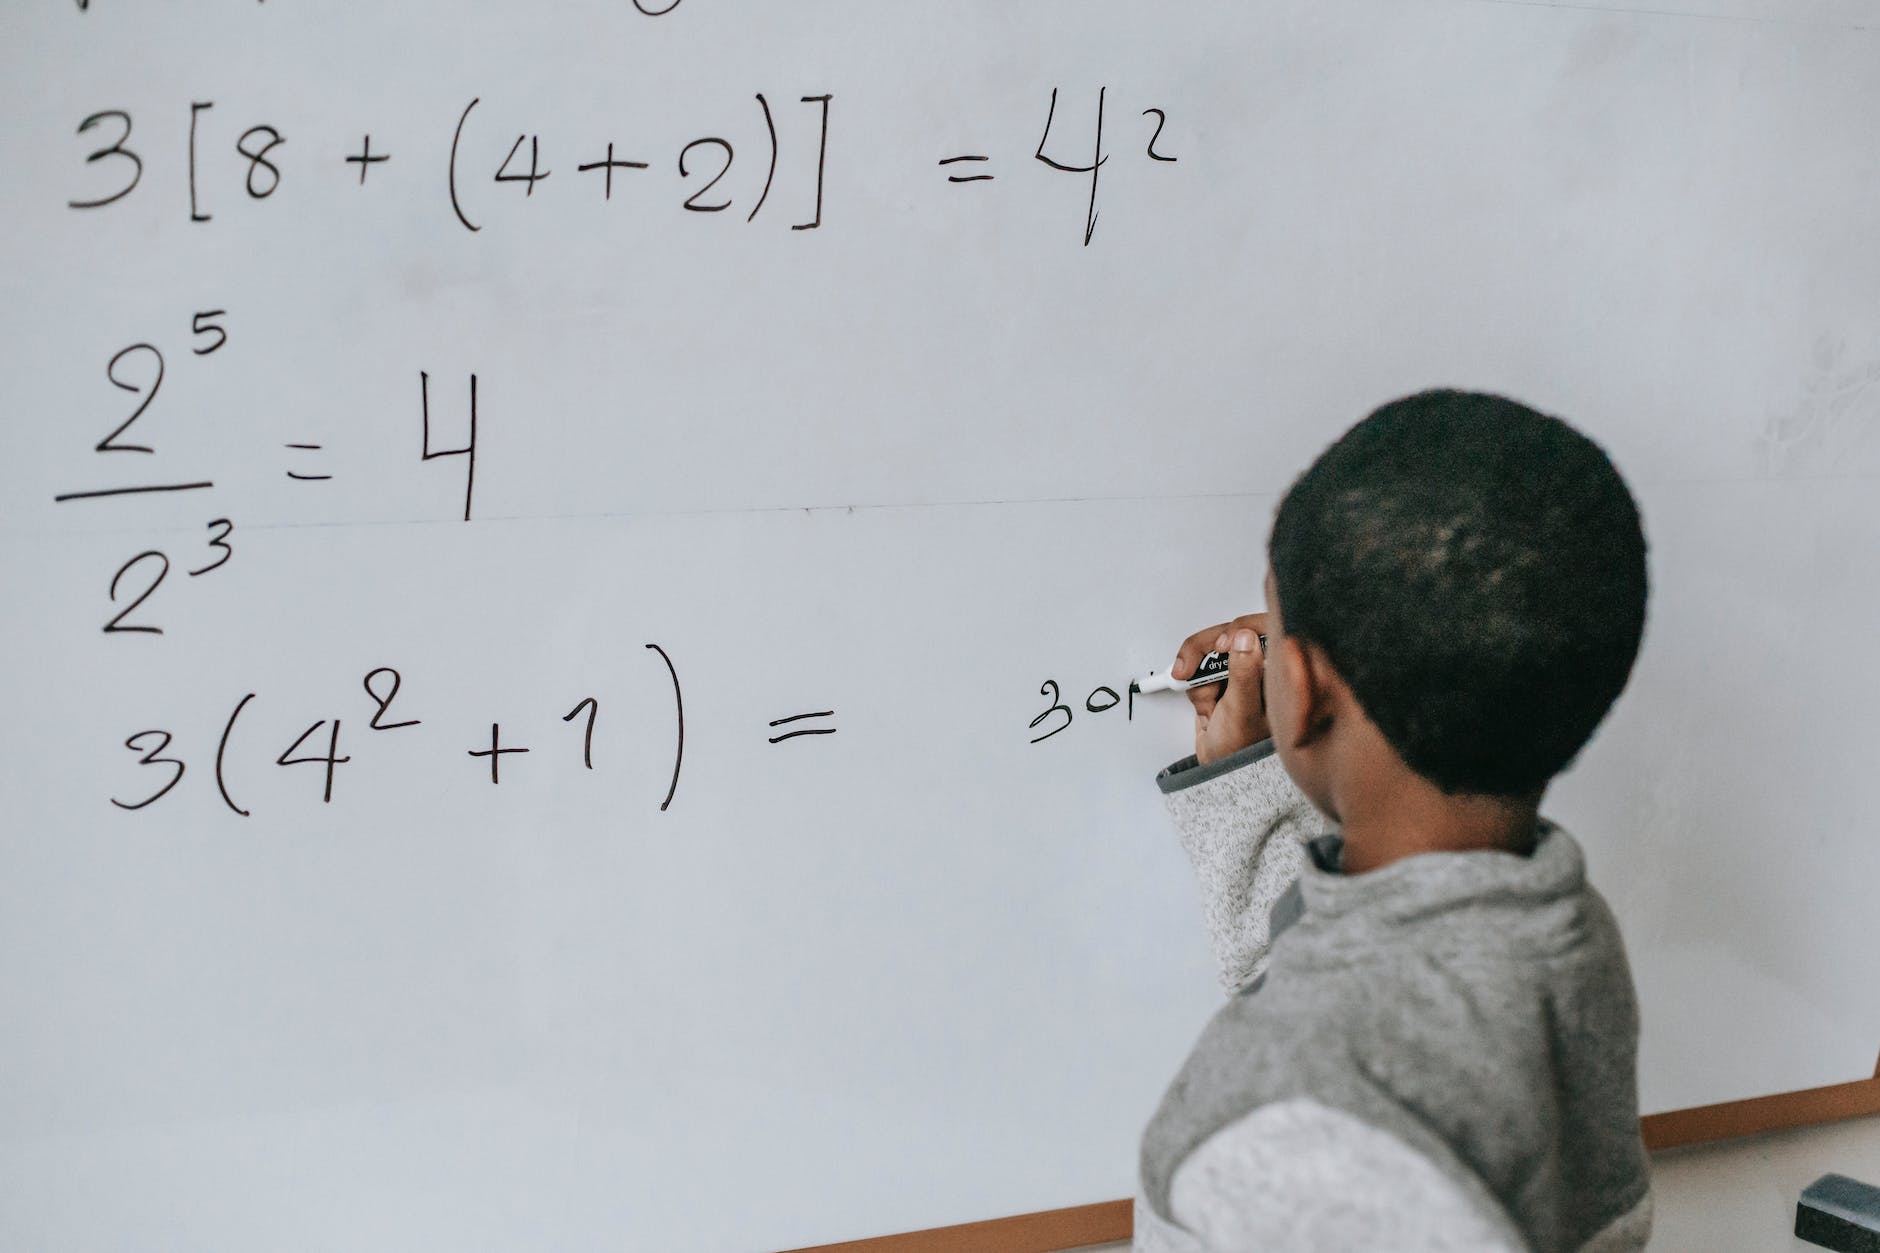 3 [ 8 + ( 4 + 2 ) ] = 42
2⁵
— = 4
2³
3 ( 4² + 1 ) = 301
dry e